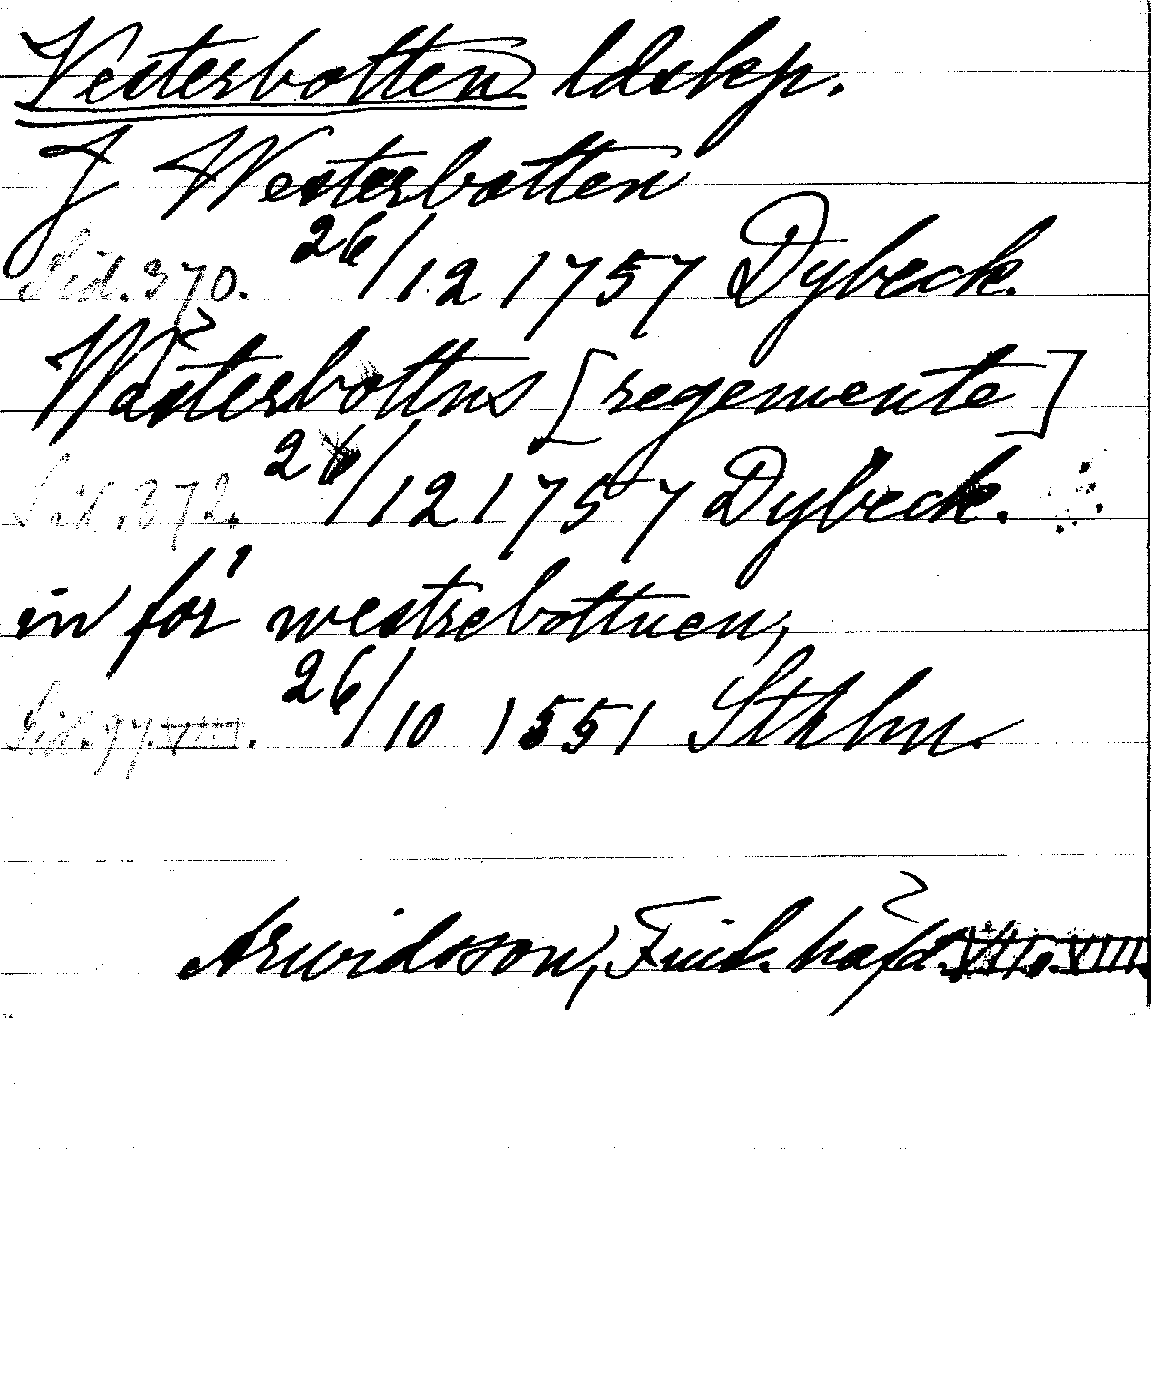 Vesterbotten ldskp.
J Westerbotten
Sid. 370. 26/12 1757 Dybeck.
Wästerbottns [regemente]
Sid. 372. 26/12 1757 Dybeck.
in för westrebottnen,
Sid. 97. 26/10 1551 Sthlm.
Arwidsson, Finl. häfd.